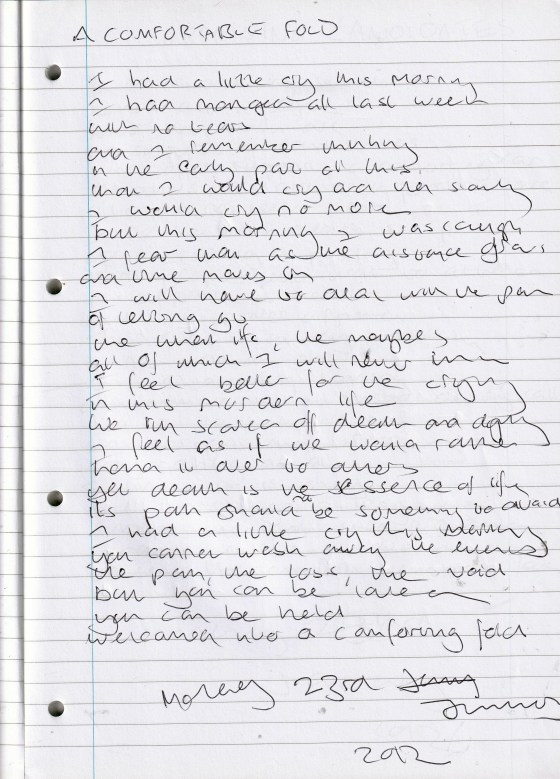 A COMFORTABLE FOLD
I had a little cry this morning
I had managed all last week
with no tears
and I remember thinking
in the early part of this
that I would cry and then slowly
I would cry no more
but this morning I was caught
I fear that as the distance grows
and time moves on
I will have to deal with the pain
of letting go
the what ifs, the maybes
all of which I will never
I feel better for the crying
in this modern life
we run scared of death and dying
I feel as if we would rather
hand it over to others
yet death is the essence of life
its path should be something to avoid
I had a little cry this morning
you cannot wash away the events
the pain, the loss, the void
but you can be loved
you can be held
welcomed into a comforting fold
Monday 23rd
2012